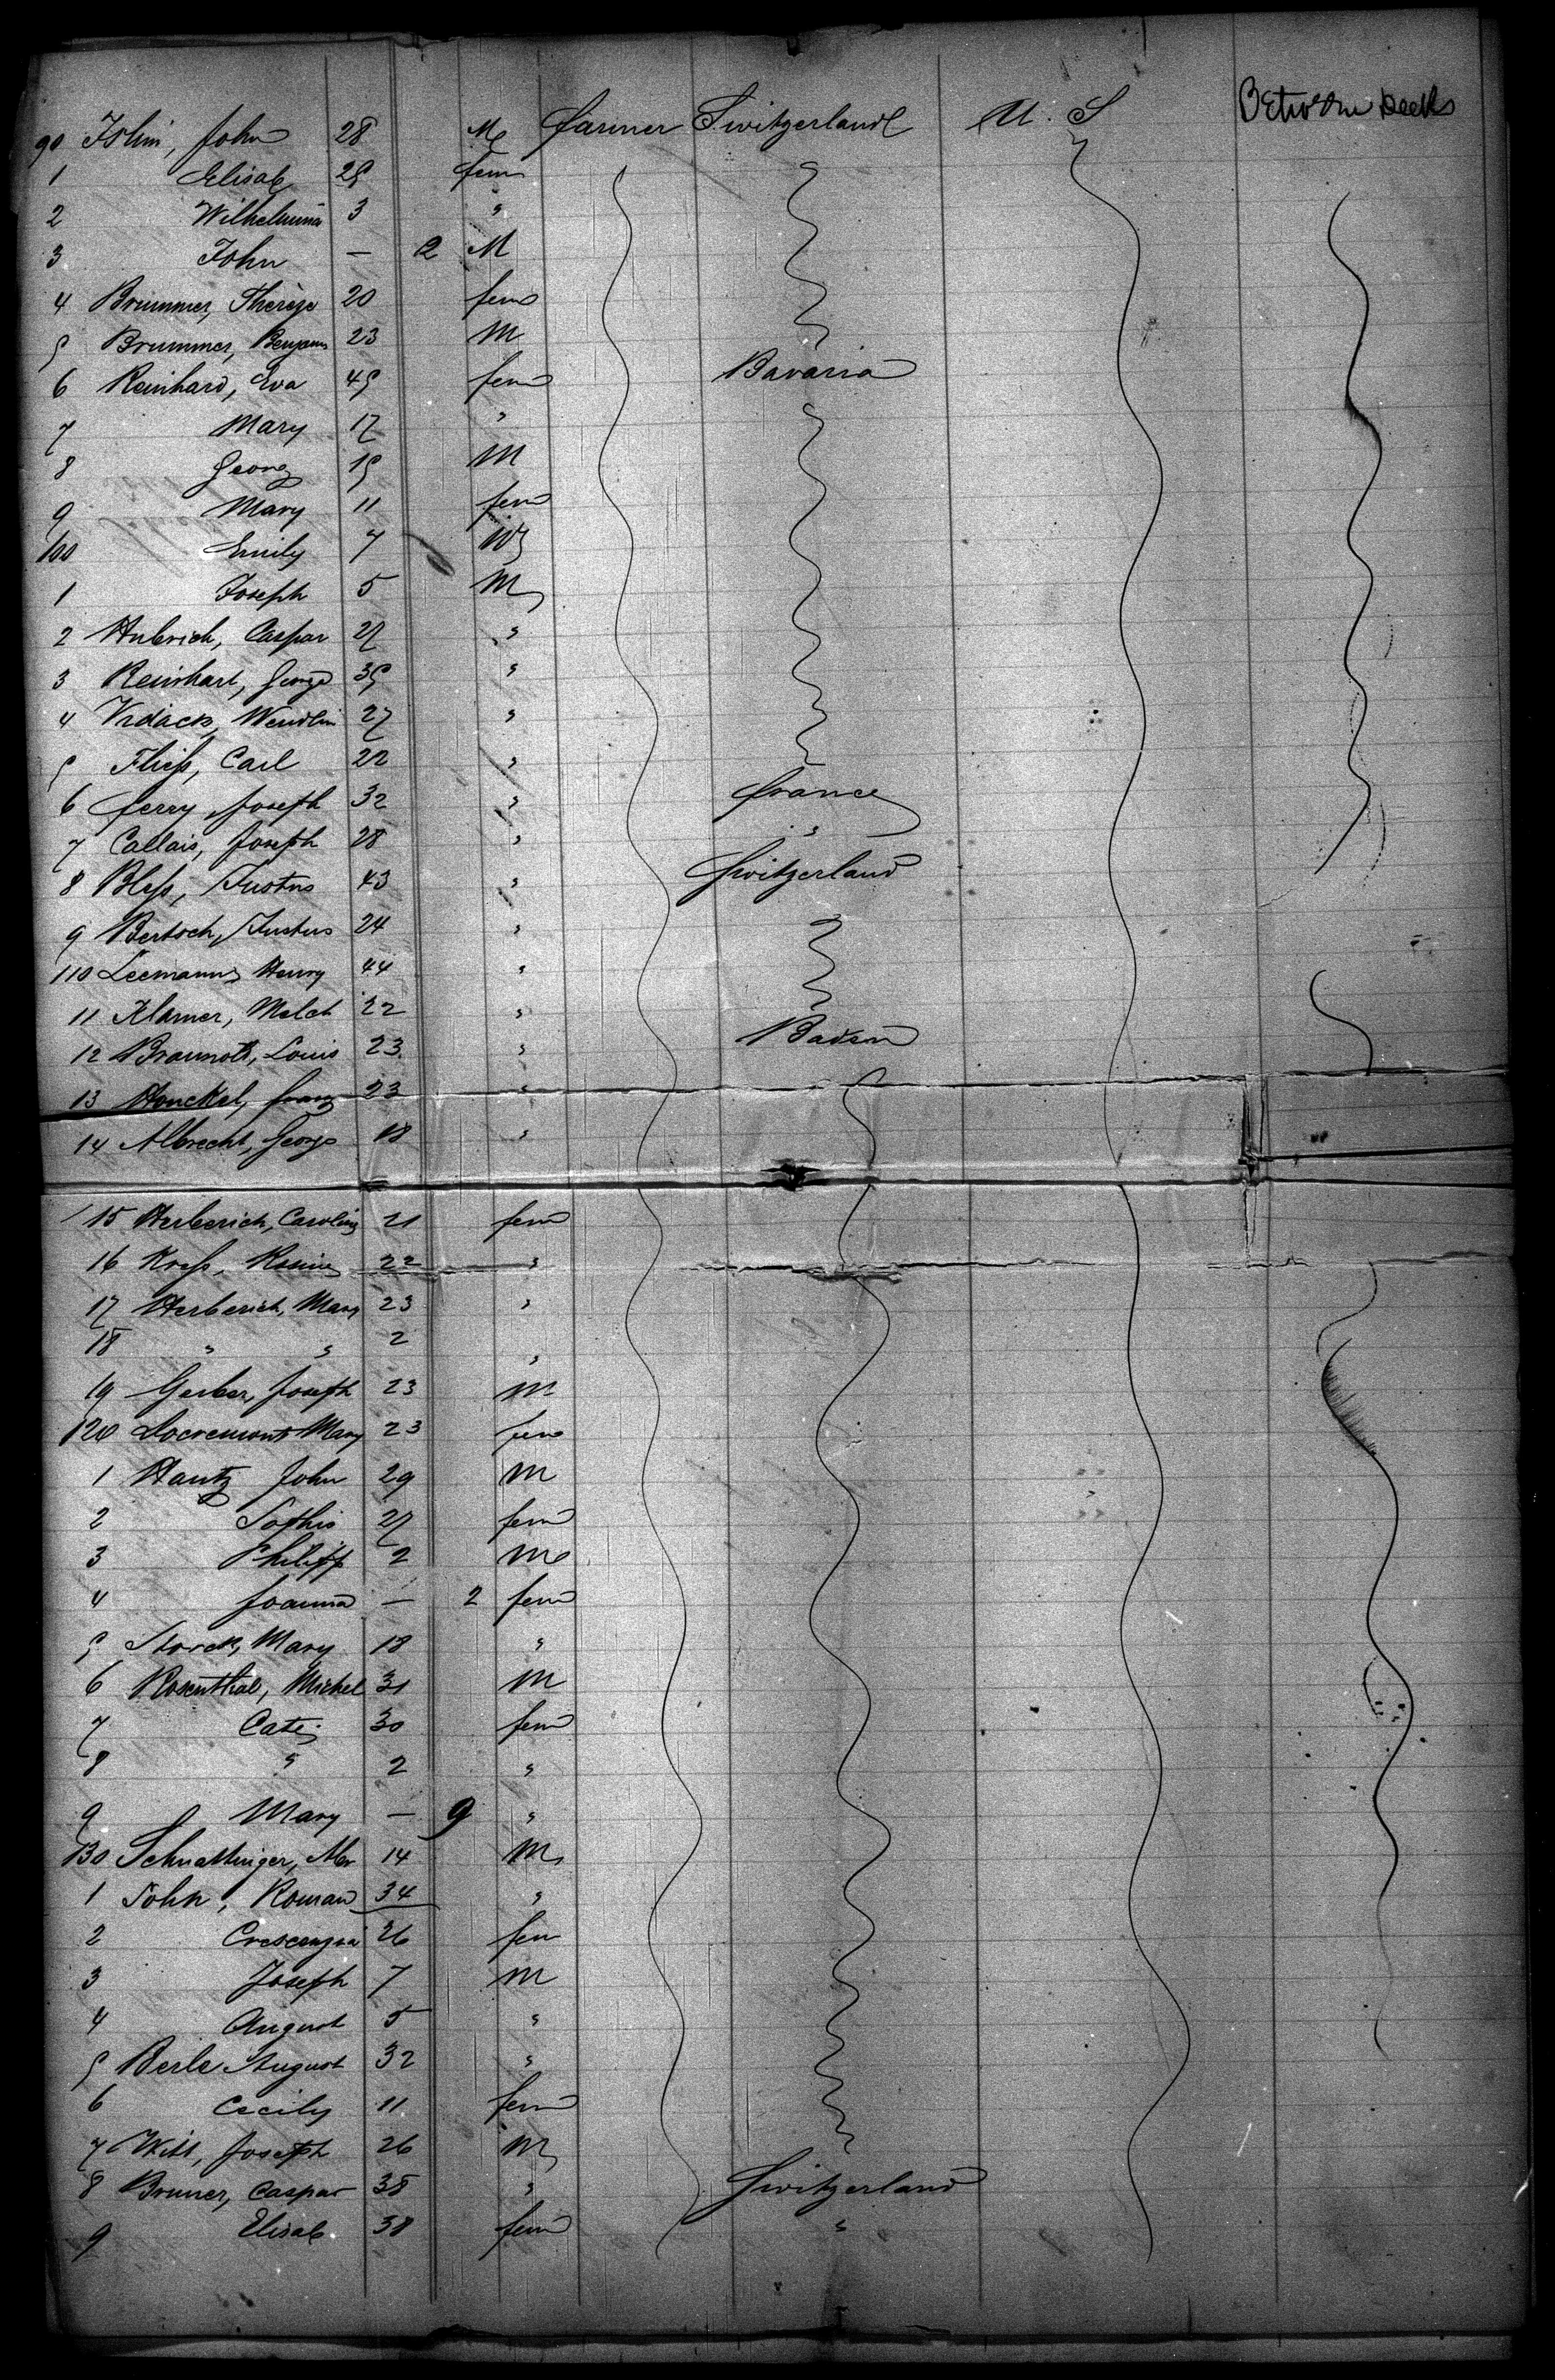 90 Islin, John 28 M farmer Switzerland U. S Between Decks
1 Elisab 25 fem
2 Wilhelmina 3 "
3 John — 2 M
4 Brummer, Therese 20 fem
5 Brummer, Benjamin 23 M
6 Reinhard, Eva 45 fem Bavaria
7 Mary 17 "
8 Georg 15 M
9 Mary 11 fem
100 Emily 7
1 Joseph 5 M
2 Hubrich, Caspar 27 "
3 Reinhart, George 35 "
4 Wendlin 27 "
5 Fliess, Carl 22 "
6 Ferry, Joseph 32 " France
7 Callais, Joseph 28 " "
8 Bless, Justus 43 " Switzerland
9 Bertsch, Justus 24 "
110 Leemann, Henry 44 "
11 Klamer, Melch 22 "
12 Louis 23 " Baden
13 Henckel, Franz 23 "
14 Albrecht, George 18 "
15 Herberich, Carolina 21 fem
16 Kress, Rosina 22 "
17 Herberich, Mary 23 "
18 " " 2 "
19 Gerber, Joseph 23 M
120 Mary 23 fem
1 Hantz John 29 M
2 Sophie 27 fem
3 Philipp 2 M
4 Joanna — 2 fem
5 Storck, Mary 18 "
6 Rosenthal, Michel 31 M
7 Cate 30 fem
8 " 2 "
9 Mary — 9 "
130 Schnattinger, 14 M
1 John, Roman 34 "
2 Crescenzia 26 fem
3 Joseph 7 M
4 August 5 "
5 Berle August 32 "
6 Cecily 11 fem
7 Witt, Joseph 26 M
8 Bruner, Caspar 38 " Switzerland
9 Elisab 38 fem "